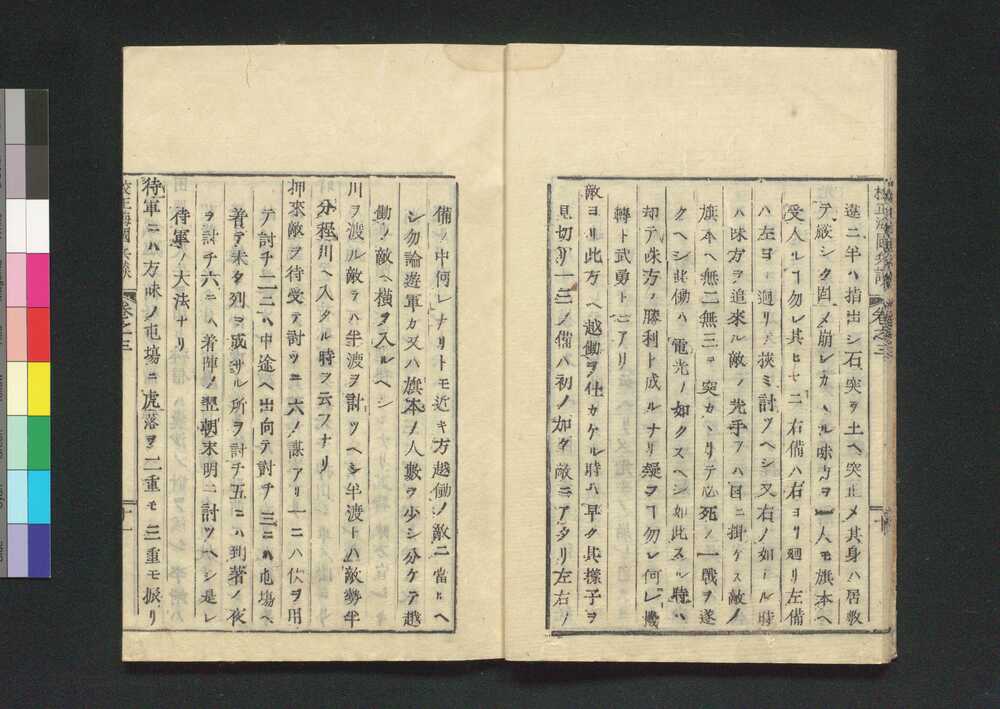 校正海國兵談 卷之三 十
遠二半ハ指出シ石突ヲ土ヘ突止メ其身ハ居敷
テ綾シク固メ崩レカヽル味方ヲ一人モ旗本ヘ
受入ルヽヿ勿レ其ヒマニ右備ハ右ヨリ廻リ左備
ハ左ヨリ廻リテ挾ミ討ツヘシ又右ノ如クスル時
ハ味方ヲ追來ル敵ノ先手ヲハ目ニ掛ケス敵ノ
旗本ヘ無二無三ニ突カヽリテ必死ノ一戰ヲ遂
クヘシ此働ハ電光ノ如クスヘシ如此スル時ハ
却テ味方ノ勝利ト成ルナリ疑フヿ勿レ何レ機
轉ト武勇トニアリ
敵ヨリ此方ヘ越働ヲ仕カケル時ハ早ク其樣子ヲ
見切リ一二ノ備ハ初ノ如ク敵ニアタリ左右ノ
備ノ中何レナリトモ近キ方越働ノ敵ニ當ルヘ
シ勿論遊軍カ又ハ旗本ノ人數ヲ少シ分ケテ越
働ノ敵ヘ横ヲ入ルヘシ
川ヲ渡ル敵ヲハ半渡ヲ討ツヘシ半渡トハ敵勢半
分程川ヘ入タル時ヲ云フナリ
押來敵ヲ待受テ討ツニ六ノ謀アリ一ニハ伏ヲ用
テ討チ二ニハ中途ヘ出向テ討チ三ニハ屯場ヘ
着テ未タ列ヲ成サル所ヲ討チ五ニハ到著ノ夜
ヲ討チ六ニハ着陣ノ翌朝末明ニ討ツヘシ是レ
待軍ノ大法ナリ
待軍ニハ方味ノ屯場ニ虎落ヲ二重モ三重モ振リ
校正海國兵談 卷之三